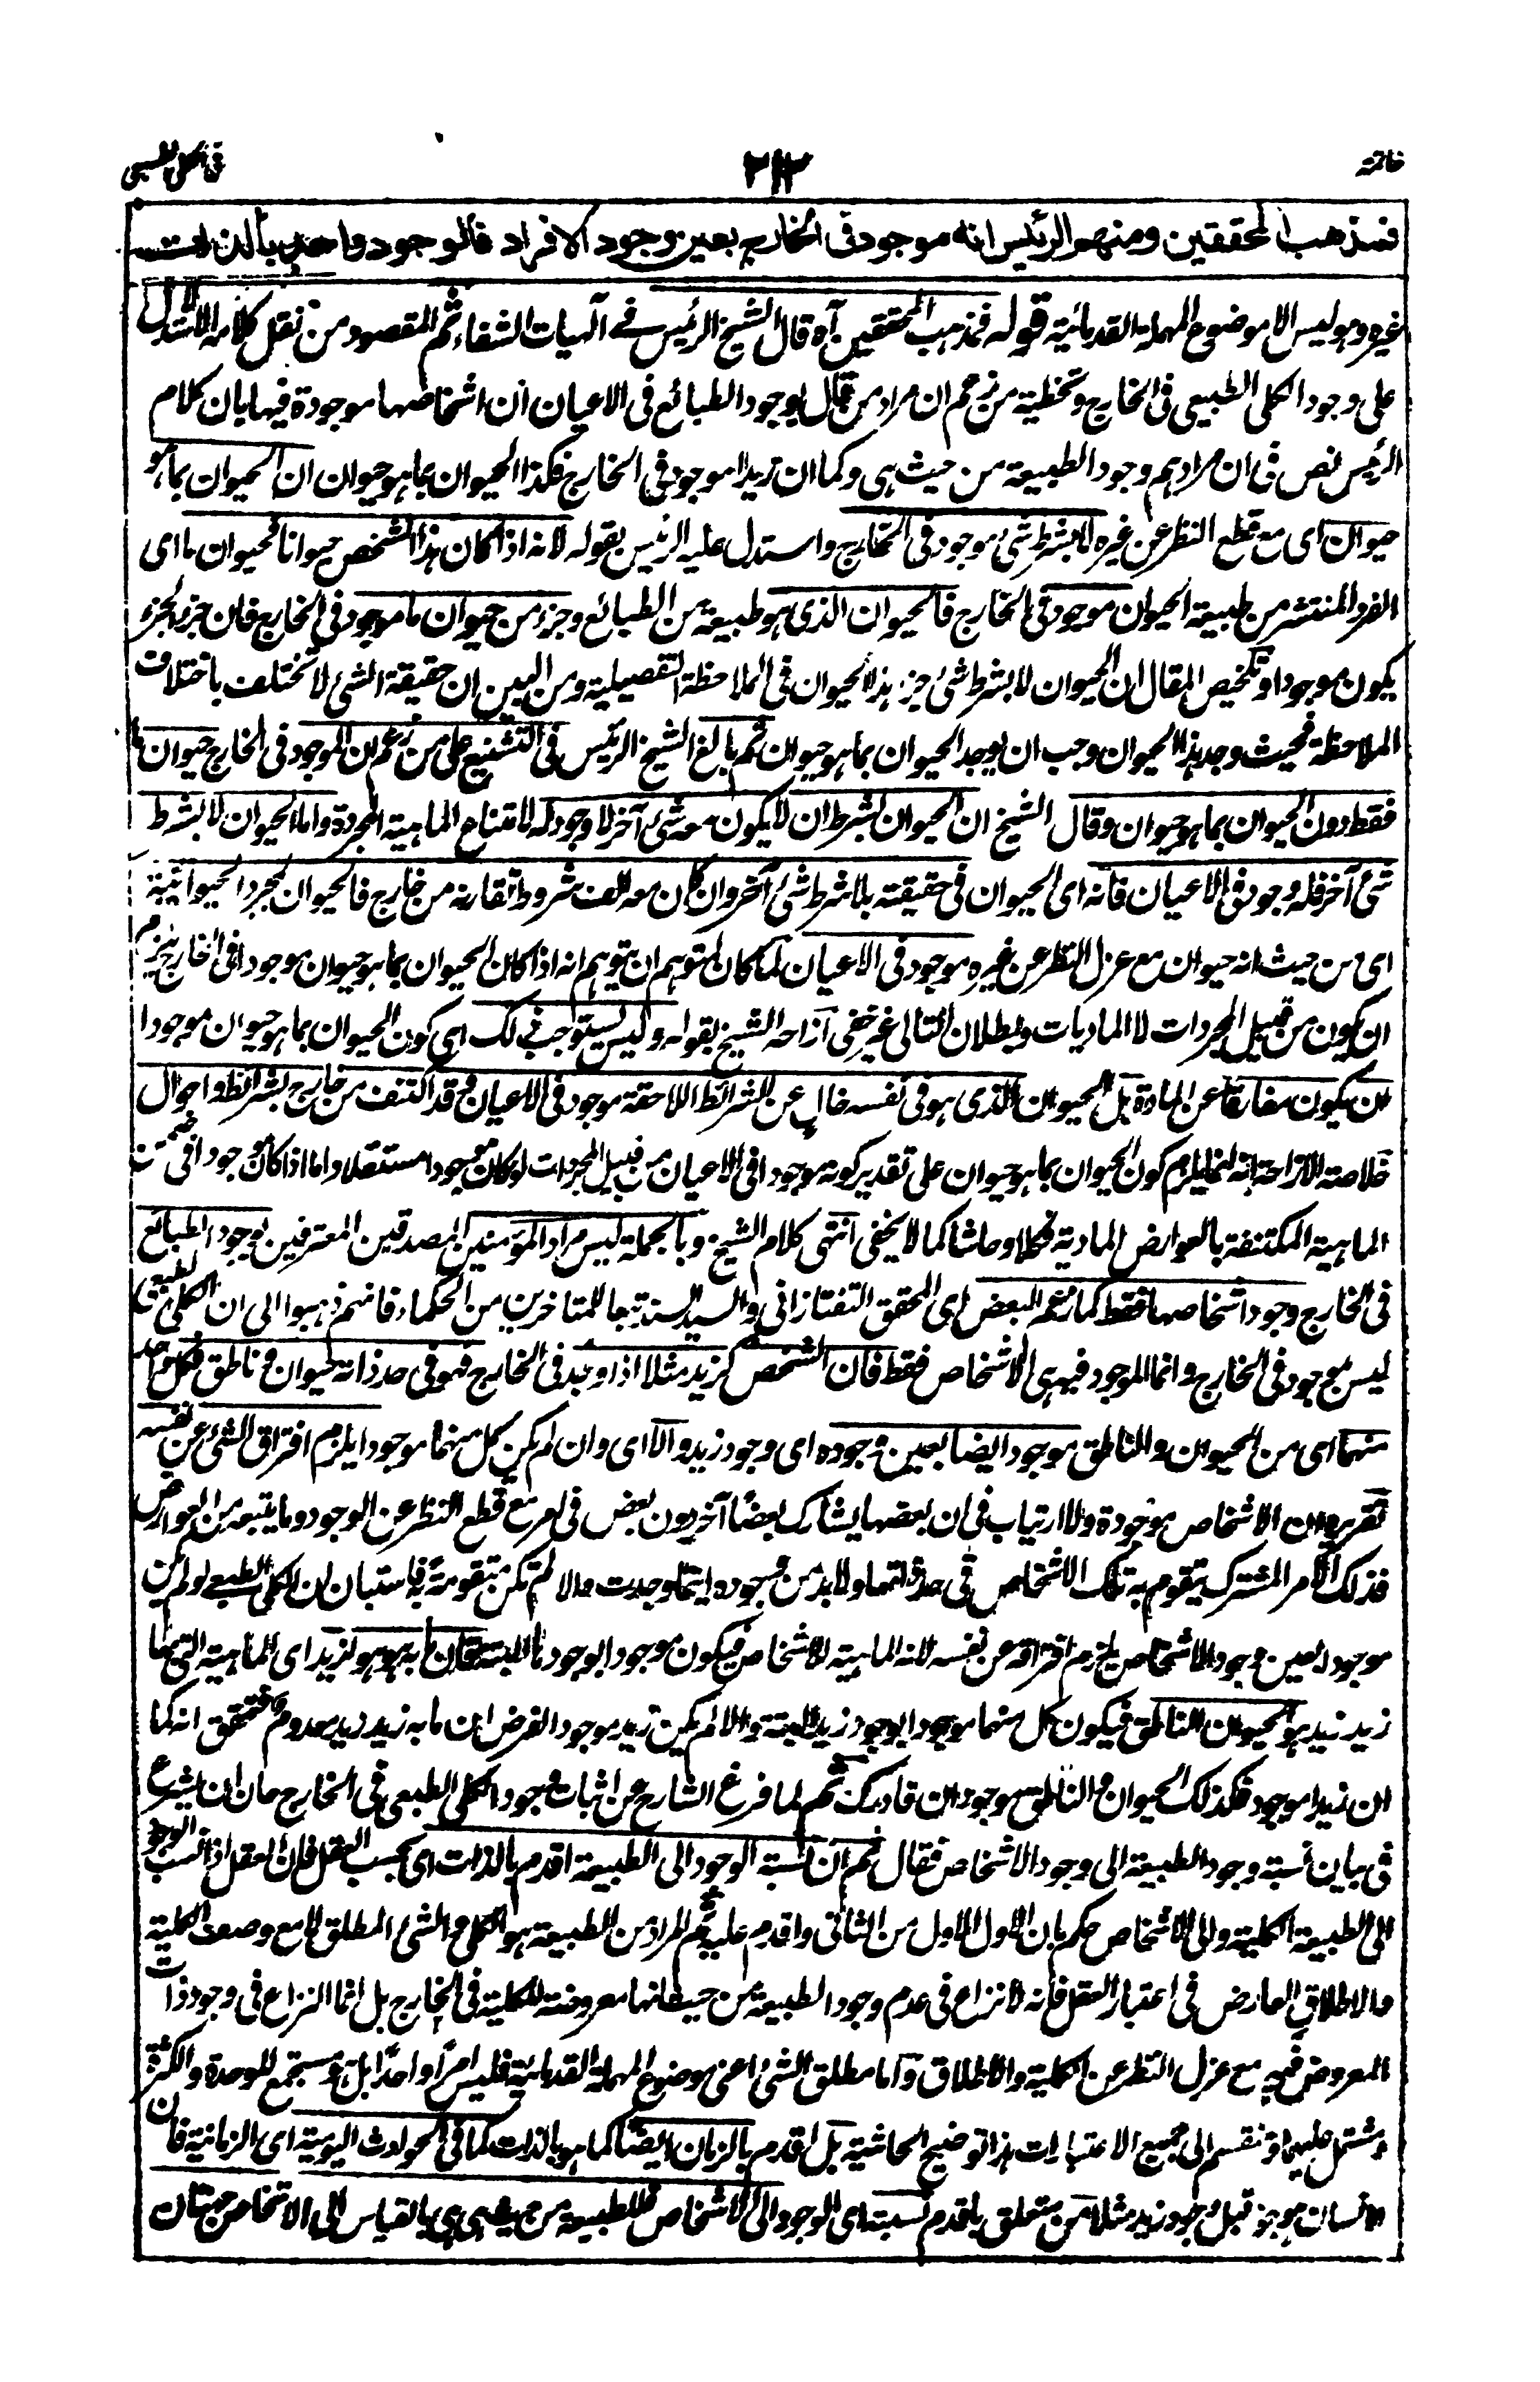 خاتمة
٢١٣
فى الكلى الطبيعى
فمذهب المحققين ومنهم الرئيس انه موجود فى الخارج بعين وجود الافراد فالوجود واحد بالذات
غيره وهو ليس الا موضوع المهملة القدمائية قوله فمذهب المحققين آه قال الشيخ الرئيس فے آلهيات الشفاء ثم المقصود من نقل كلامه الاستدلال
على وجود الكلى الطبيعى فى الخارج وتخطية من زعم ان مراد من قال بوجود الطبائع فى الاعيان ان اشخاصها موجودة فيها بان كلام
الرئيس نص فى ان مرادهم وجود الطبيعة من حيث هى وكما ان زيدا موجود فى الخارج فكذا الحيوان بما هو حيوان ان الحيوان بما هو
حيوان اى مع قطع النظر عن غيره لا بشرط شئ موجود فى الخارج واستدل عليه الرئيس بقوله لانه اذا كان هذا الشخص حيوانا فحيوان ما اى
الفرد المنتشر من طبيعة الحيوان موجود فى الخارج فالحيوان الذى هو طبيعة من الطبائع وجزء من حيوان ما موجود فى الخارج فان جزء الجزء
يكون موجودا وتلخيص المقال ان الحيوان لا بشرط شئ جزء هذا الحيوان فى الملاحظة التفصيلية ومن البين ان حقيقة الشئ لا تختلف باختلاف
الملاحظة فحيث وجد هذا الحيوان وجب ان يوجد الحيوان بما هو حيوان ثم بالغ الشيخ الرئيس فى التشنيع على من زعم ان الموجود فى الخارج حيوان ما
فقط دون الحيوان بما هو حيوان وقال الشيخ ان الحيوان بشرط ان لا يكون معه شئ آخر لا وجود له لامتناع الماهية المجردة واما الحيوان لا بشرط
شئ آخر فله وجود فى الاعيان فانه اى الحيوان فى حقيقته بلا شرط شئ آخر وان كان معه الف شروط تقارنه من خارج فالحيوان بمجرد الحيوانية
اى من حيث انه حيوان مع عزل النظر عن غيره موجود فى الاعيان لما كان لمتوهم ان يتوهم انه اذا كان الحيوان بما هو حيوان موجودا فى الخارج يلزم
ان يكون من قبيل المجردات لا الماديات وبطلان التالى غير خفى آزاحه الشيخ بقوله وليس يستوجب ذلك اى كون الحيوان بما هو حيوان موجودا
ان يكون مفارقا عن المادة بل الحيوان الذى هو فى نفسه خال عن الشرائط اللاحقة موجود فى الاعيان وقد اكتنف من خارج بشرائط واحوال
خلاصة الازاحة انه انما يلزم كون الحيوان بما هو حيوان على تقدير كونه موجودا فى الاعيان من قبيل المجردات لو كان موجودا مستقلا واما اذا كان موجودا فى ضمن
الماهية المكتنفة بالعوارض المادية فكلا وحاشا كما لا يخفى انتهى كلام الشيخ وبالجملة ليس مراد المؤمنين المصدقين المعترفين بوجود الطبائع
فى الخارج وجود اشخاصها فقط كما زعمه البعض اى المحقق التفتازانى والسيد السند تبعا للمتاخرين من الحكماء فانهم ذهبوا الى ان الكلى الطبيعى
ليس بموجود فى الخارج وانما الموجود فيه هى الاشخاص فقط فان الشخص كزيد مثلا اذا وجد فى الخارج فهو فى حد ذاته حيوان وناطق فكل واحد
منهما اى من الحيوان والناطق موجود ايضا بعين وجوده اى وجود زيد والا اى وان لم يكن كل منهما موجودا يلزم افتراق الشئ عن نفسه
تقريره ان الاشخاص موجودة ولا ارتياب فى ان بعضها يشارك بعضا آخر دون بعض فى امر مع قطع النظر عن الوجود وما يتبعه من العوارض
فذلك الامر المشترك يتقوم به تلك الاشخاص فى حد ذاتها ولا بد من وجوده اينما وجدت والا لم تكن متقومة به فاستبان ان الكلى الطبعے لو لم يكن
موجودا بعين وجود الاشخاص يلزم افتراقه عن نفسه لانه الماهية للاشخاص فيكون موجودا بوجودها البتة فان ما به هو هو لزيد اى الماهية التى بها
زيد زيد هو الحيوان الناطق فيكون كل منهما موجودا بوجود زيد البتة والا لم يكن زيد موجودا الفرض ان ما به زيد زيد معدوم فتحقق انه كما
ان زيدا موجود فكذلك الحيوان والناطق موجودان فادرك ثم لما فرغ الشارح عن اثبات وجود الكلى الطبعى فى الخارج حان ان يشرع
فى بيان نسبة وجود الطبيعة الى وجود الاشخاص فقال ثم ان نسبة الوجود الى الطبيعة اقدم بالذات اى بحسب العقل فان العقل اذا نسب الوجود
الى الطبيعة الكلية والى الاشخاص حكم بان الاول الاول من الثانى واقدم عليه ثم المراد من الطبيعة هو الكلى والشئ المطلق لا مع وصف الكلية
والاطلاق العارض فى اعتبار العقل فانه لا نزاع فى عدم وجود الطبيعة من حيث انها معروضة للكلية فى الخارج بل انما النزاع فى وجود ذات
المعروض فيه مع عزل النظر عن الكلية والاطلاق واما مطلق الشئ اعنى موضوع المهملة القدمائية فليس امرا واحدا بل هو مستجمع للوحدة والكثرة
مشتمل عليهما ومنقسم الى جميع الاعتبارات هذا توضيح الحاشية بل اقدم بالزمان ايضا كما هو بالذات كما فى الحوادث اليومية اى الزمانية فان
الانسان موجود قبل وجود زيد مثلا من متعلق باقدم نسبته اى الوجود الى الاشخاص فللطبيعة من حيث هى هى بالقياس الى الاشخاص جهتان